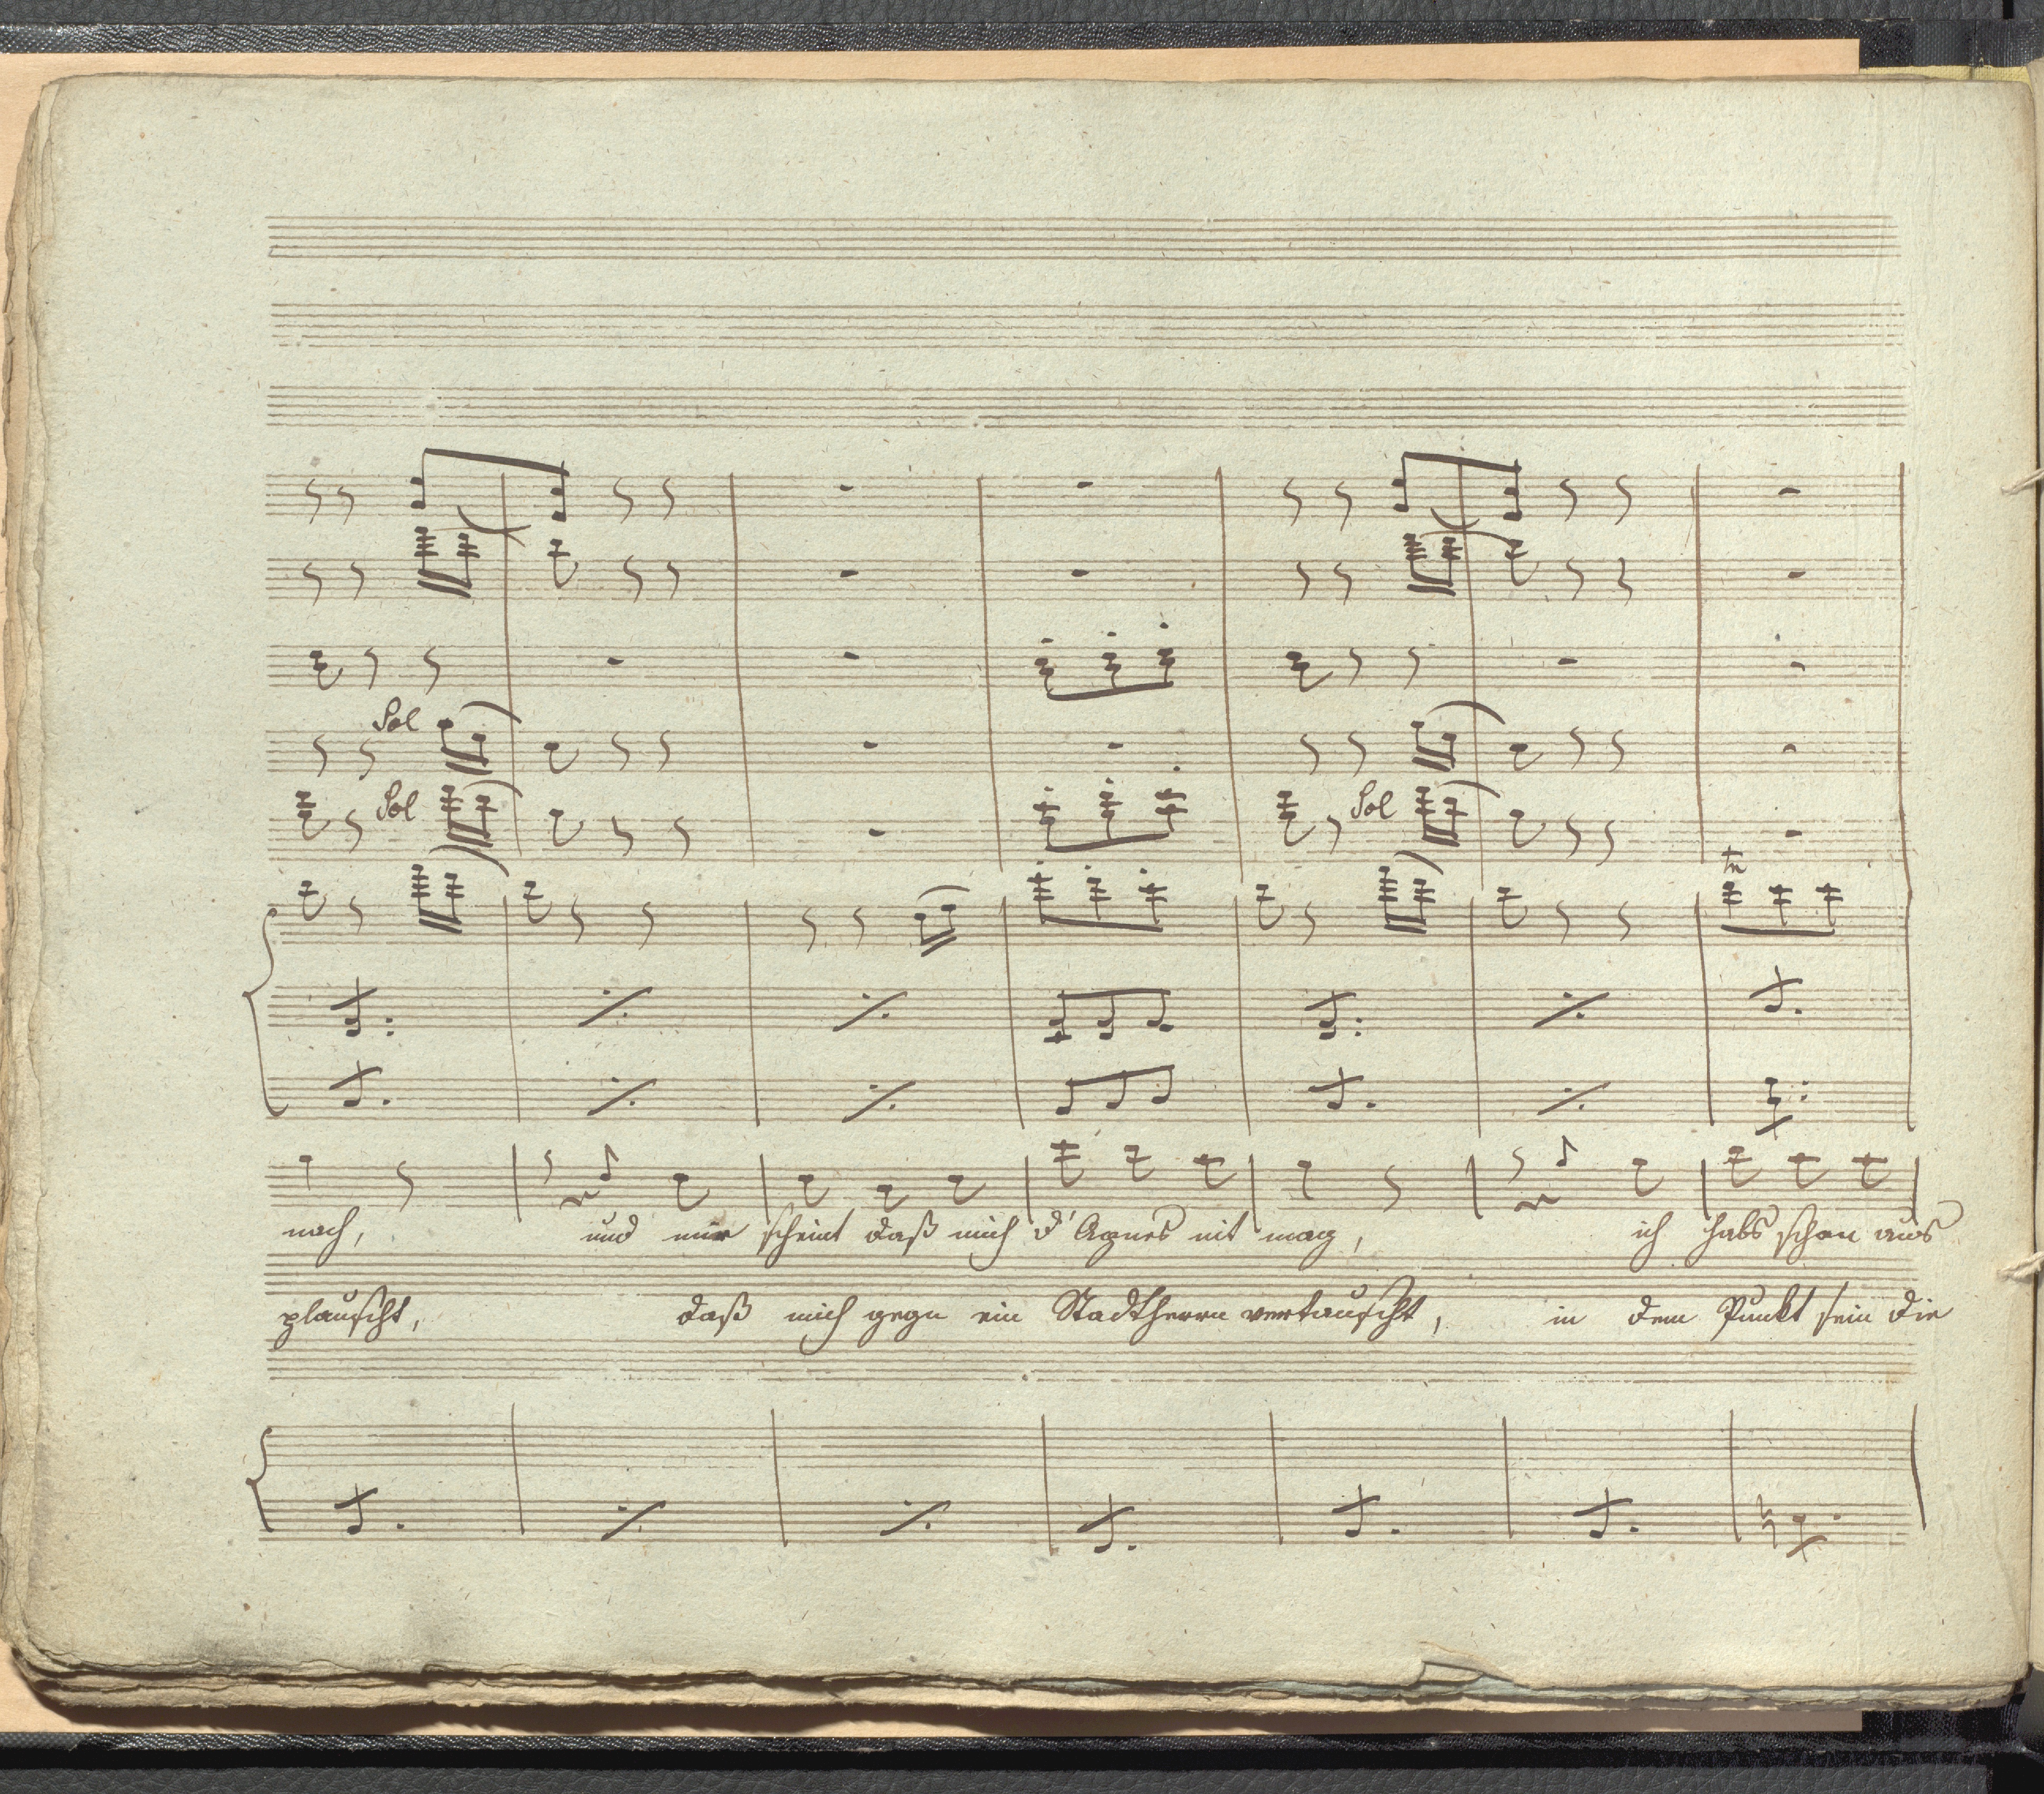 Sol
Sol Sol
tr
nach, und mir scheint daß mich d' Agnes nit mag, ich habs schon aus
plauscht, daß mich gegn ein Stadtherrn vertauscht, in dem Punkt sein die